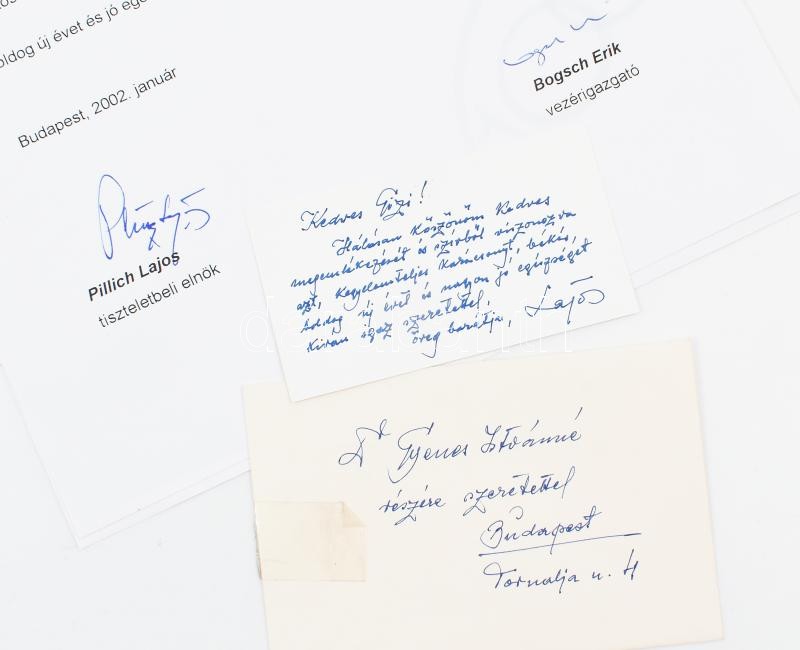 oldog új évet és jó egé
Budapest, 2002. január
Bogsch Erik
vezérigazgató
Pillich Lajos
tiszteletbeli elnök
Kedves Gizi!
Hálásan köszönöm kedves
megemlékezését és szívből viszonozva
azt, kegyelemteljes karácsonyt, békés,
boldog új évet és nagyon jó egészséget
kíván igaz szeretettel,
öreg barátja, Lajos
Dr Gyenes Istvánné
részére szeretettel
Budapest
Tornalja u. 4